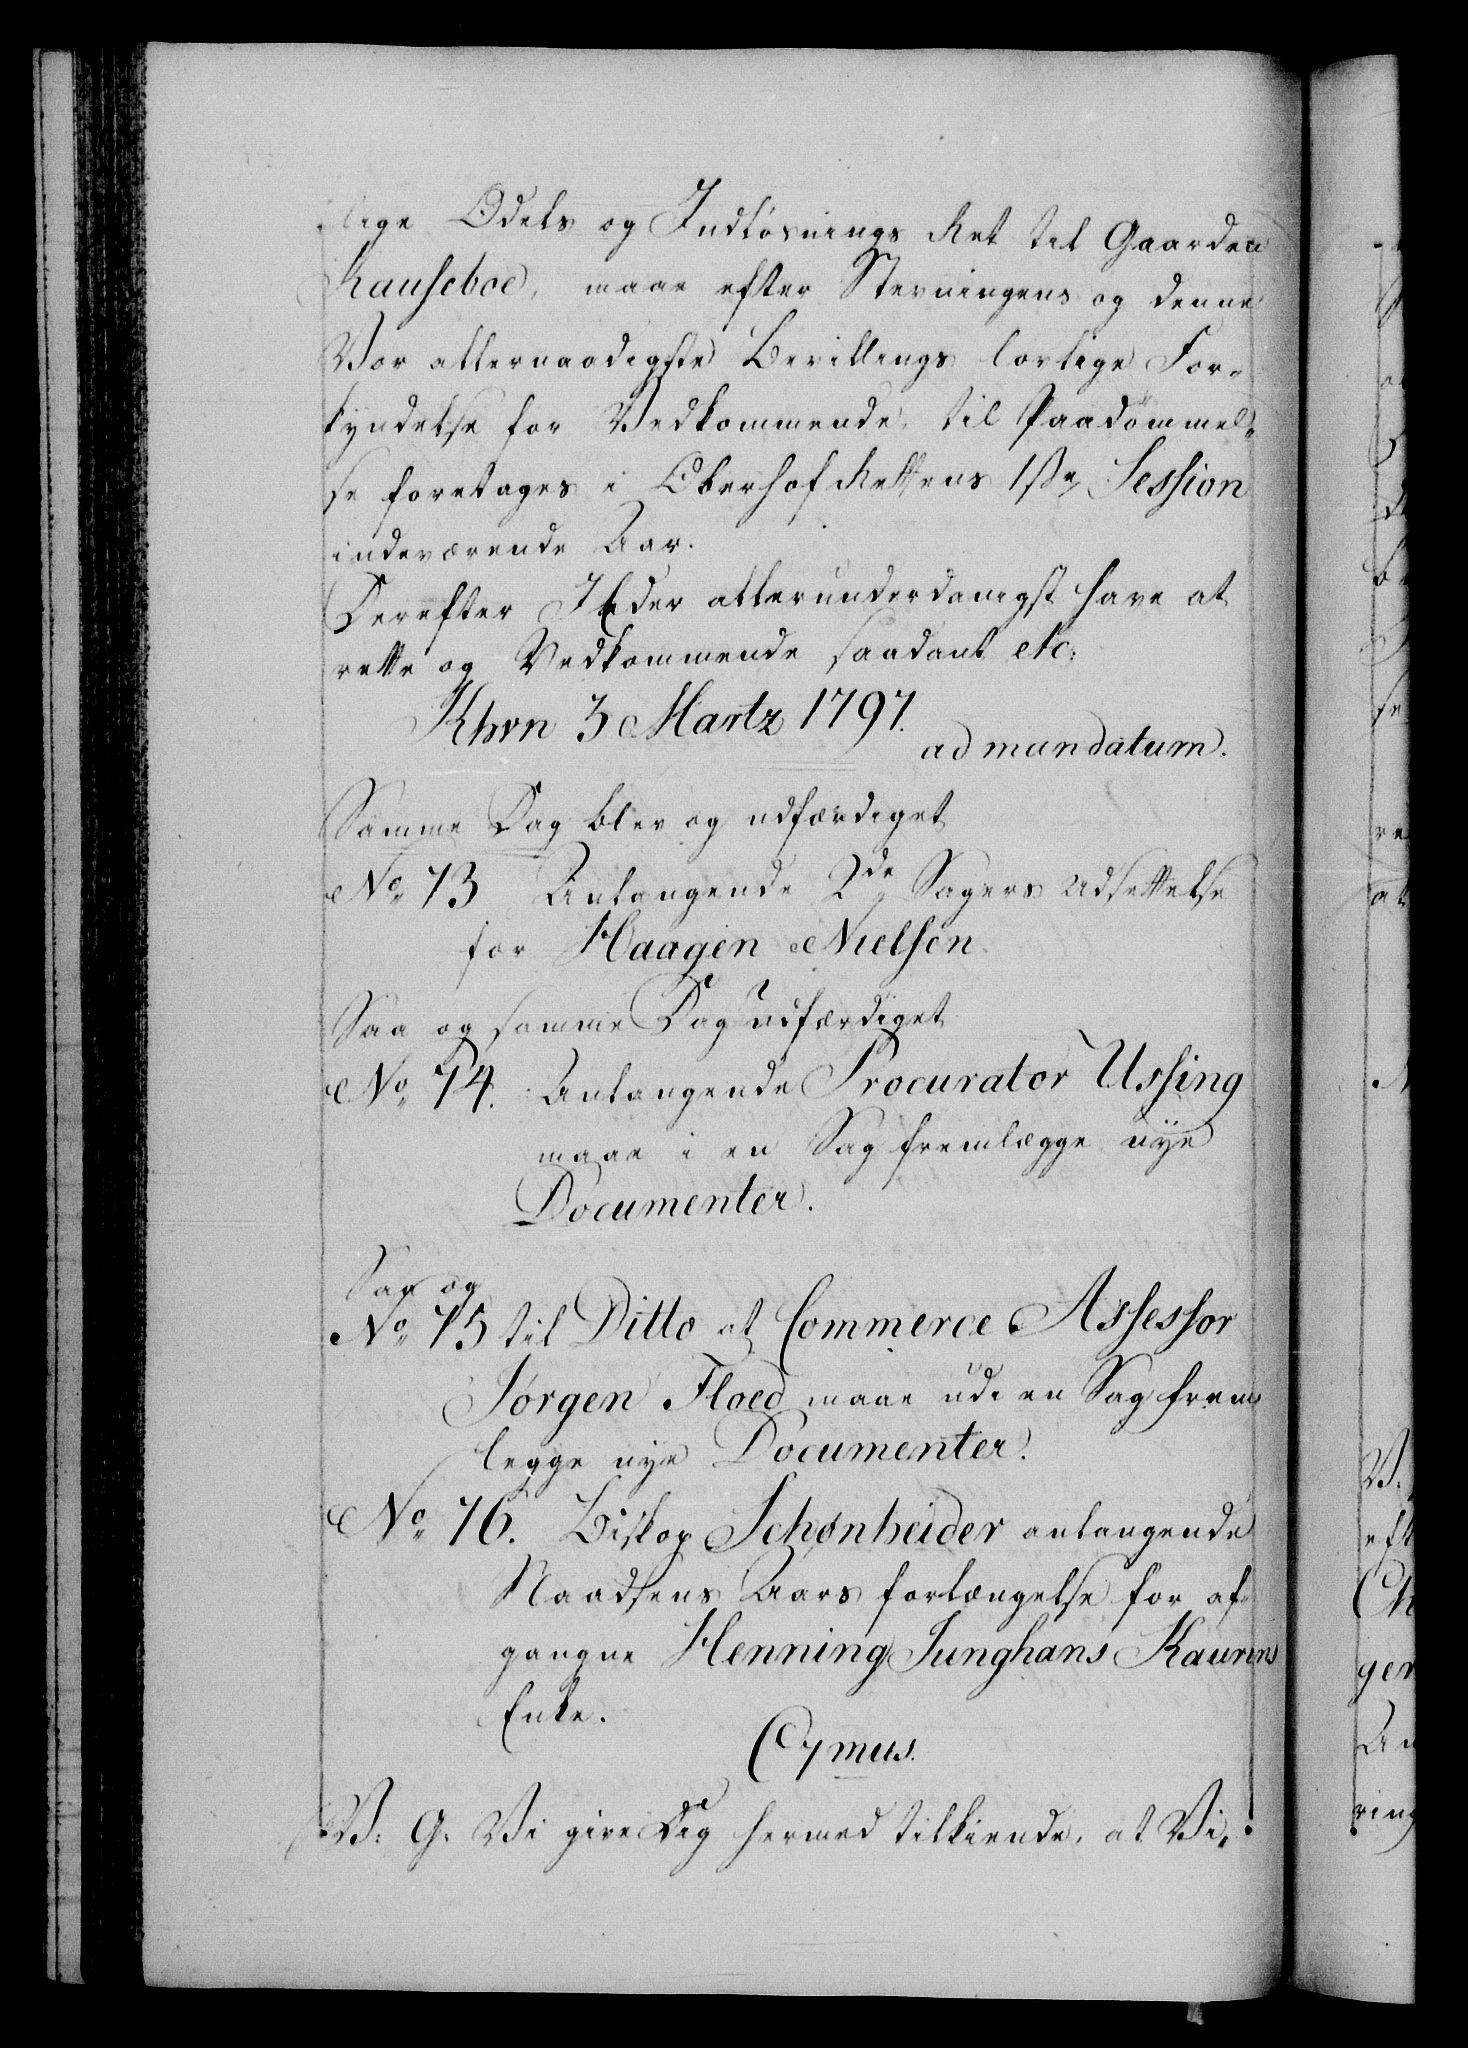 lige Odels og Indløsnings Ret til Gaarden
Rauseboe, maae efter Stevningens og denne
Vor allernaadigste Bevillings lovlige For-
kyndelse for Vedkommende, til Paadømmel-
se foretages i OberhofRettens 1ste Session
indeværende Aar.
Derefter I Eder allerunderdanigst have at
rette og Vedkommende saadant etc:
Khvn 3 Martz 1797.
ad mandatum.
Samme Dag blev og udfærdiget
No 73 Anlangende 2de Sagers Udsettelse
for Haagen Nielsen.
Saa og samme Dag udfærdiget
No 74. Anlangende Procurator Ussing
maae i en Sag fremlægge nye
Documenter.
Saa og
No 75 til Ditto at Commerce Assessor
Jørgen Floed maae udi en Sag frem
legge nye Documenter.
No 76. Biskop Schønheider anlangende
Naadsens Aars forlængelse for af-
gangne Henning Junghans Kaurins
Enke.
C 7mus.
V: G: Vi give Dig hermed tilkiende, at Vi,